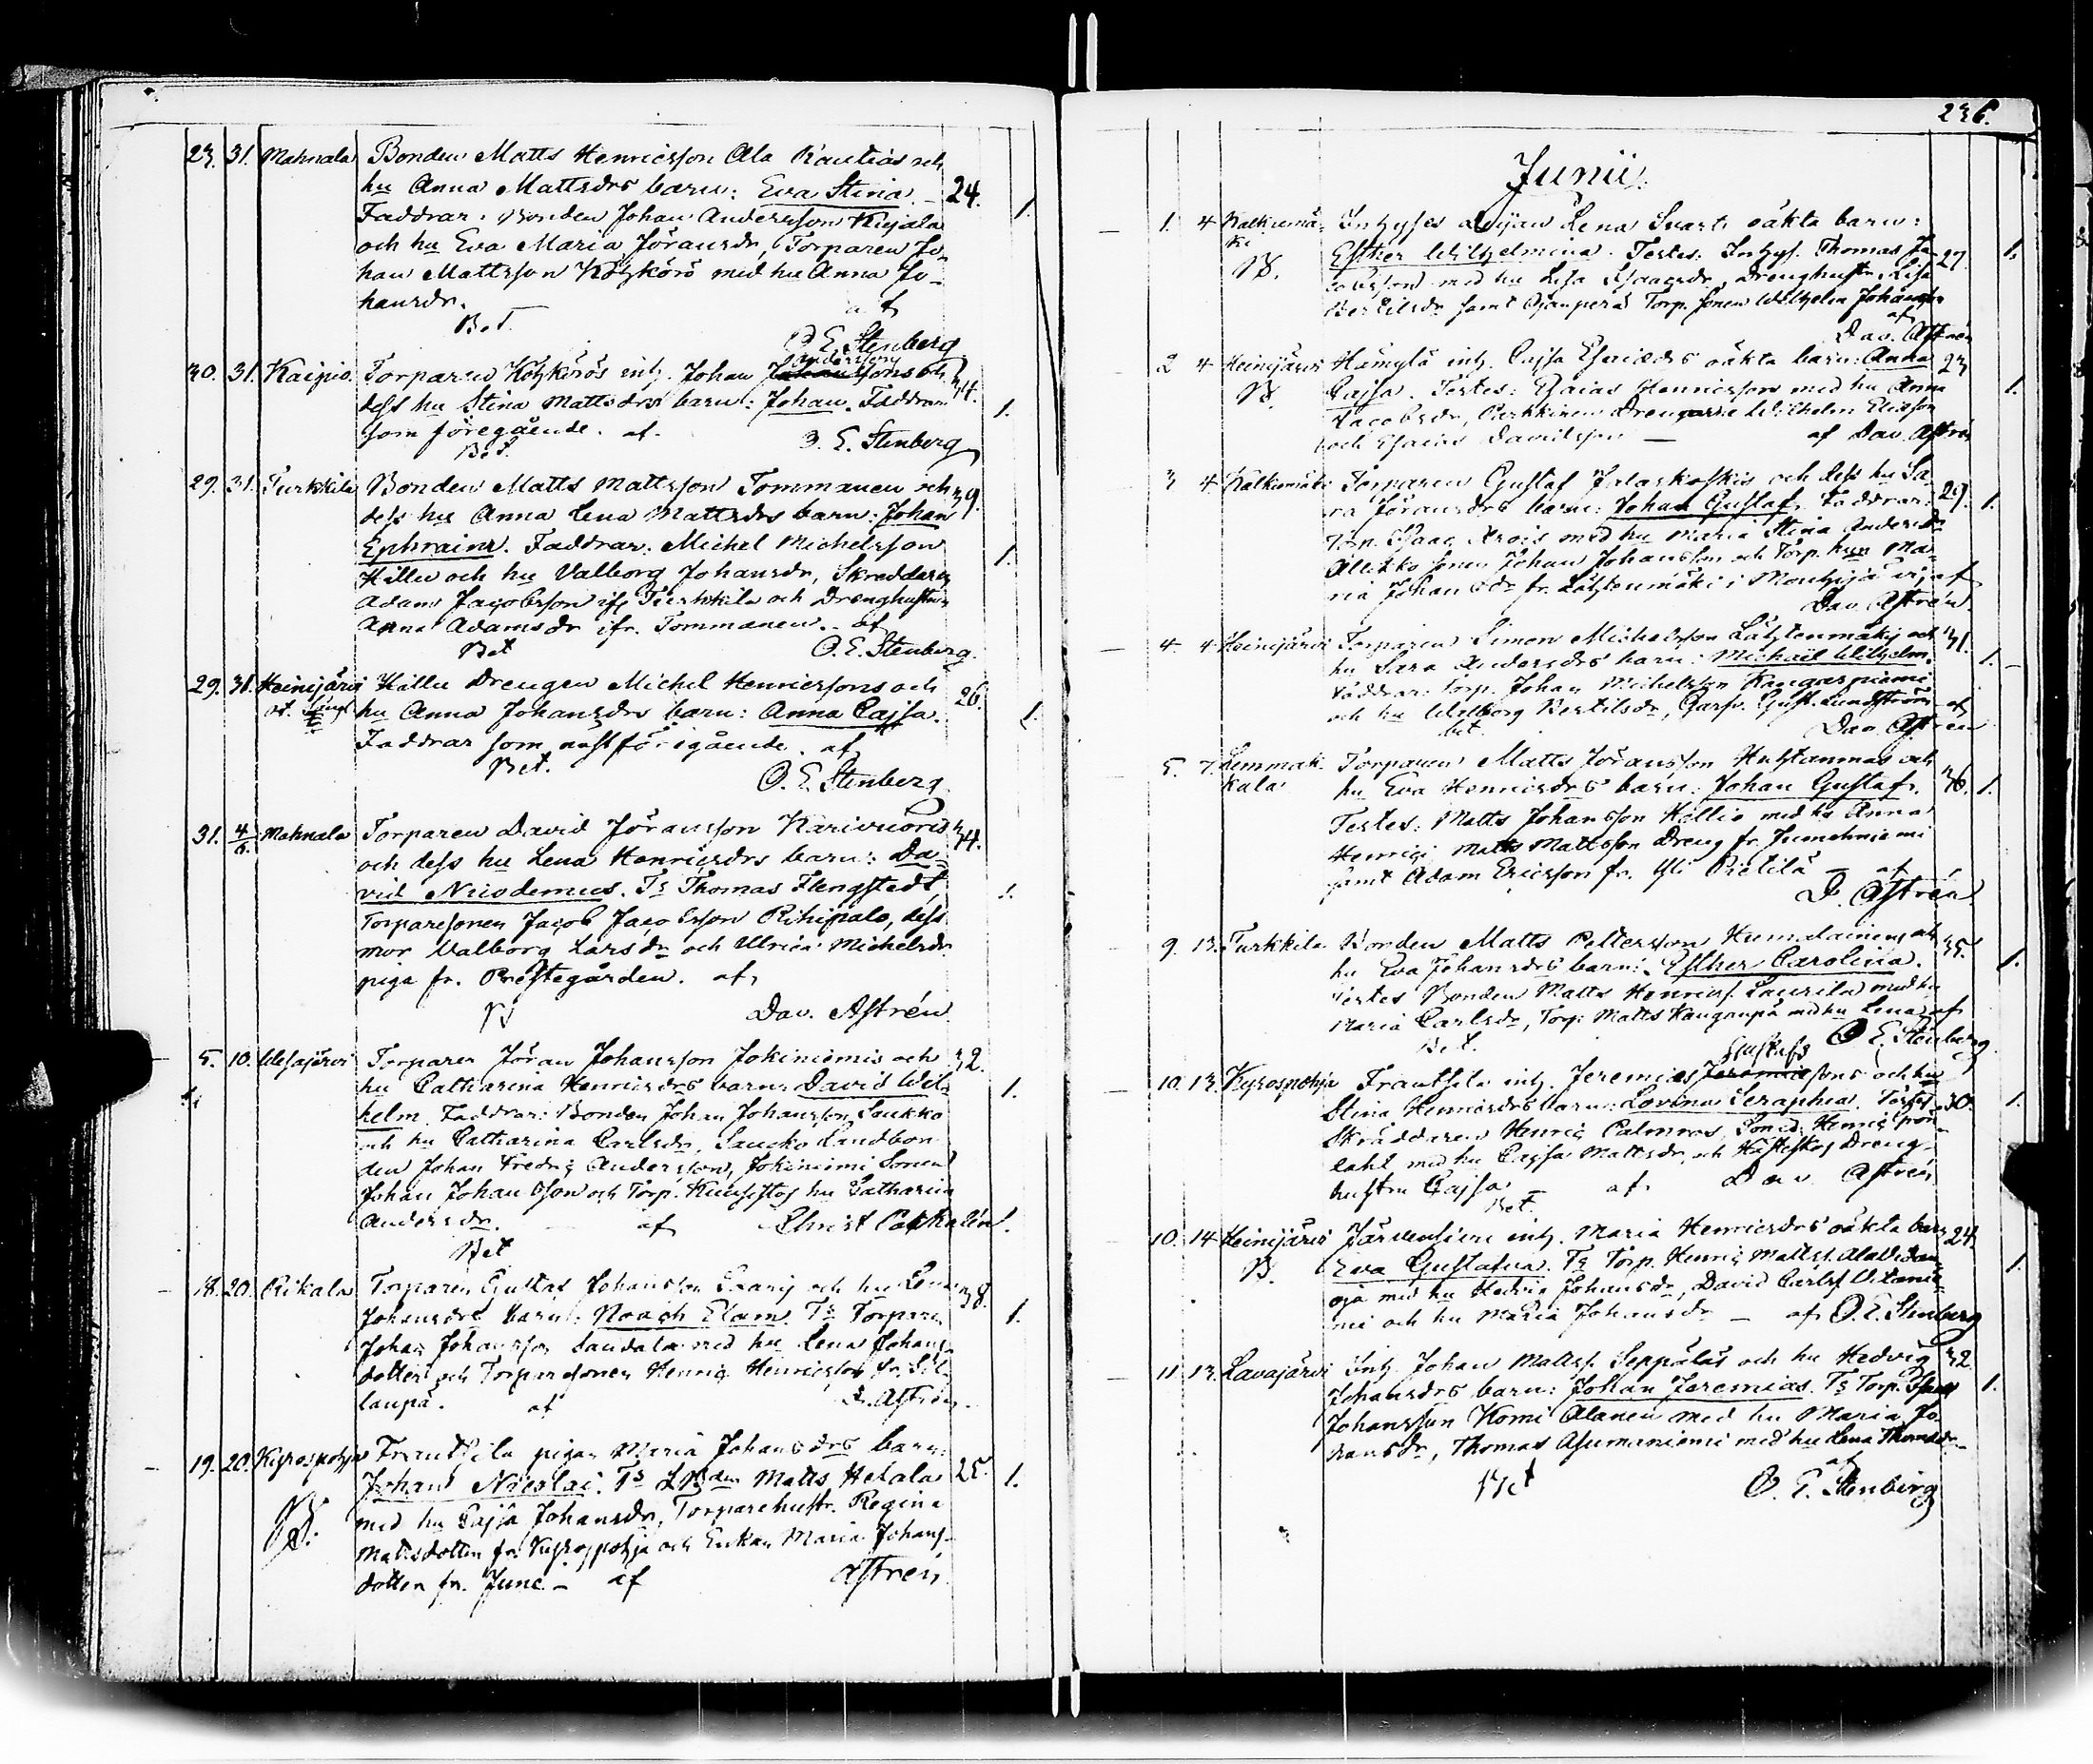 23. 31. Mahnala Bonden Matts Henricsson Ala Rautias och
hu Anna Mattsdrs barn: Eva Stina. 24. 1.
Faddrar: Bonden Johan Andersson Kujala
och hu Eva Maria Jöransdr, Torparen Jo-
han Mattsson Kötkörö med hu Anna Jo-
hansdr. af
Bet. O. E. Stenberg
andersson
30. 31. Kaipio. Torparen Kötkörös inh. Johan Johanssons och 34.
dess hu Stina Mattsdrs barn: Johan. Faddrar 1.
som föregående. af
Bet. O. E. Stenberg
29. 31. Turkkila Bonden Matts Mattsson Tommanen och 39.
dess hu Anna Lena Mattsdrs barn: Johan
Ephraim. Faddrar: Michel Michelsson 1.
Hillu och hu Valborg Johansdr, Skreddaren
Adam Jacobsson ifr. Turkkila och Drenghustrun
Anna Adamsdr ifr. Tommanen. af
Bet O. E. Stenberg
29. 31. Heinijärvi Hillu Drengen Michel Henricssons och 26.
hu Anna Johansdrs barn: Anna Cajsa. 1.
Faddrar som näst föregående. af
Bet. O. E. Stenberg
31. 4/6. Mahnala Torparen David Jöransson Karivuoris 34.
och dess hu Lena Henricsdrs barn: Da-
vid Nicodemus. Ts Thomas Flengstedt, 1.
Torparesonen Jacob Jacobsson Rihipalo, dess
mor Valborg Larsdr och Ulrica Michelsdr
piga fr. Prestegården. af
B Dav. Astrén
5. 10. Wesajärvi Torparen Jöran Johansson Jokiniemis och 32.
hu Catharina Henricsdrs barn David Wil- 1.
helm. Faddrar: Bonden Johan Johansson Saukko
och hu Catharina Carlsdr, Saucko Landbon-
den Johan Fredric Andersson, Jokiniemi Sonen
Johan Johansson och Torp. hu Catharina
Andersdr. af
Bet
18. 20. Pikala Torparen Gustaf Johansson och hu Lena 38.
Johansdrs barn: Noach Elam. Ts Torparen 1.
Johan Johansson Sandala med hu Lena Johans-
dotter och Torparesonen Henric Henricsson fr. Sil-
lanpä. af D. Astrén
19. 20. Kyrospohja Frantsila pigan Maria Johansdrs barn:
Johan Nicolai. Ts Matts Hetala 25. 1.
B. med hu Cajsa Johansdr, Torparehustr. Regina
Matsdotter fr. Kyrospohja och Enkan Maria Johans-
dotter fr. Juné - af Astrén
236.
Junii.
1. 4 Kalkunmä- Inhyses Lena Svarts oäkta barn:
ki Esther Wilhelmina. Testes: Inhys. Thomas Ja- 27. 1.
B. cobsson med hu Lisa Isaacsdr, Drenghustr. Lisa
Bertilsdr samt Ojanperä Torp. Sonen Wilhelm Johansson
af
Dav. Astrén
2 4 Heinijärvi Hämylä inh. Cajsa Esaiædrs oäkta barn: Anna 23
B. Cajsa. Testes: Esaias Henricsson med hu Anna 1.
Jacobsdr, Parkkinen Drengarne Wilhelm Eliasson
och Esaias Davidsson — af Dav. Astrén
3 4 Kalkunmäki Torparen Gustaf Jalaskoskis och dess hu Sa-
ra Jöransdrs barn: Johan Gustaf. Faddrar: 29. 1.
Torp. Isaac Krois med hu Maria Stina Andersdr
Allikko Sonen Johan Johansson och Torp. hun Ma-
ria Johansdr fr. Lähtenmäki i Mouhijärvi, af
Dav. Astrén
4. 4 Heinijärvi Torparen Simon Michelsson Lähtenmäkis och 31.
hu Sara Andersdrs barn: Michaël Wilhelm. 1.
Faddrar: Torp. Johan Michelsson Kangasniemi
och hu Walborg Bertilsdr, Garfv. Gust. Lundström af
bet. Dav. Astrén
5. 7. Lemmak- Torparen Matts Jöransson Huhtanmas och
kala hu Eva Henricsdrs barn: Johan Gustaf. 36. 1.
Testes: Matts Johansson Hollio med hu Anna
Henrici Matts Mattsson Dreng fr. Jumesniemi
samt Adam Ericsson fr. Yli Pietilä — af
D. Astrén
9. 13. Turkkila Bonden Matts Pettersson Humalainens och 35.
hu Eva Johansdrs barn: Esther Carolina. 1.
Testes Bonden Matts Henricss. Laurila med hu
Maria Carlsdr, Torp. Matts Kangenpä med hu Lena af
Bet. O. E. Stenberg
Gustafs
10. 13. Kyrospohja Frantsila inh. Jeremias Jeremiæsons och hu
Stina Henricsdrs barn: Lovina Seraphia. Testes 30. 1.
Skräddaren Henric Palmros, Henric Pen-
lahl med hu Cajsa Mattsdr och Dreng-
hustru Cajsa — af Dav. Astrén
Bet.
10. 14 Heinijärvi Järvensivu inh. Maria Henricsdrs oäkta barn 24.
B. Eva Gustafva. Ts Torp. Henric Mattss. Ala Vidan- 1.
oja med hu Hedvig Johansdr, David Carlss.
mi och hu Maria Johansdr — af O. E. Stenberg
11. 13. Lavajärvi Inh. Johan Mattss. Seppäläs och hu Hedvig 32.
Johansdrs barn: Johan Jeremias. Ts Torp. Isaac 1.
Johansson Komi Alanen med hu Maria Jo-
hansdr, Thomas Asumaniemi med hu Lena Thomædr
af
Bet O. E. Stenberg